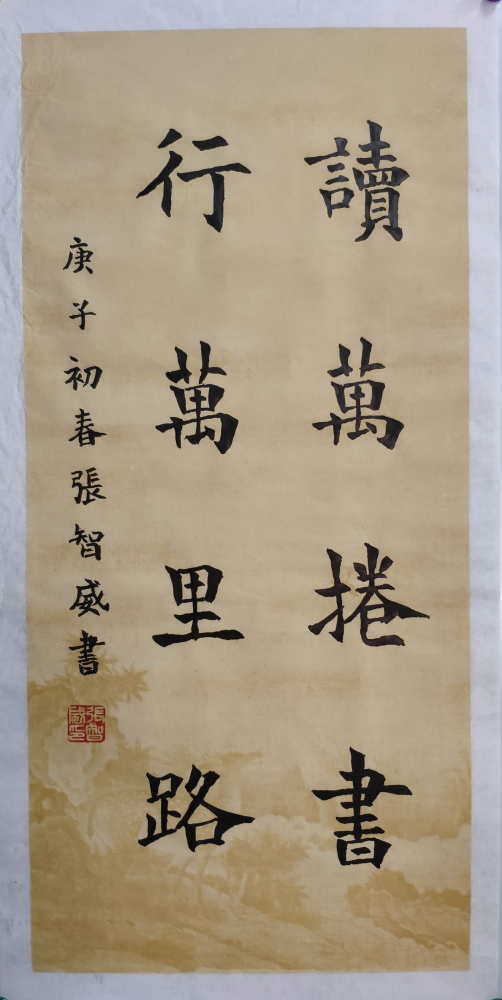 讀萬捲書
行萬里路
庚子初春張智威書
張智威印